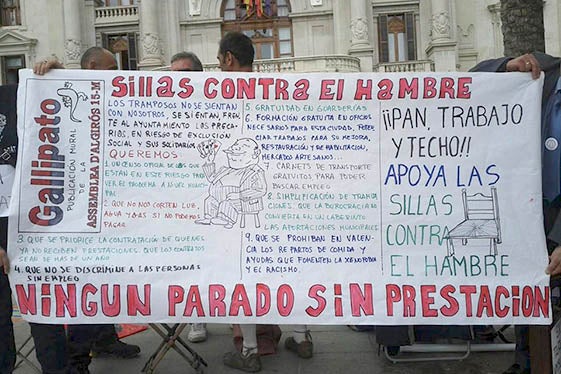 SillaS CONTRA El HAMBRE
Gallipato
PUBLICACIÓN MURAL
DE LA
ASSEMBLEA D'ALGIRÓS 15-M
LOS TRAMPOSOS NO SE SIENTAN
CON NOSOTROS, SE SIENTAN, FREN
TE AL AYUNTAMIENTO LAS PRECA
RIAS, EN RIESGO DE EXCLUSIÓN
SOCIAL Y SUS SOLIDARIOS
QUEREMOS
1. UN CENSO OFICIAL DE LAS QUE
ESTÁN EN ESTE RIESGO PARA
VER EL PROBLEMA A NIVEL MUNICI
PAL
2. QUE NO NOS CORTEN LUZ,
AGUA Y GAS SI NO PODEMOS
PAGAR
3. QUE SE PRIORICE LA CONTRATACIÓN DE QUIENES
YA NO RECIBEN PRESTACIONES QUE LOS CONTRATOS
SEAN DE MAS DE UN AÑO
4. QUE NO SE DISCRIMINE A LAS PERSONAS
SIN EMPLEO
5. GRATUIDAD EN GUARDERÍAS
6. FORMACIÓN GRATUITA EN OFICIOS
NECESARIOS PARA ESTA CIUDAD, POTEN
CIAR TRABAJOS PARA SU MEJORA,
RESTAURACIÓN Y REHABILITACIÓN,
MERCADOS ARTESANOS...
7. CARNETS DE TRANSPORTE
GRATUITOS PARA PODER
BUSCAR EMPLEO
8. SIMPLIFICACIÓN DE TRAMITA
CIONES QUE LA BUROCRACIA NO
CONVIERTA EN UN LABERINTO
LAS APORTACIONES MUNICIPALES
9. QUE SE PROHIBAN EN VALEN-
CIA LOS REPARTOS DE COMIDA Y
AYUDAS QUE FOMENTEN LA XENOFOBIA
Y EL RACISMO.
¡¡PAN, TRABAJO
Y TECHO!!
APOYA LAS
SILLAS
CONTRA
EL HAMBRE
NINGUN PARADO SIN PRESTACION